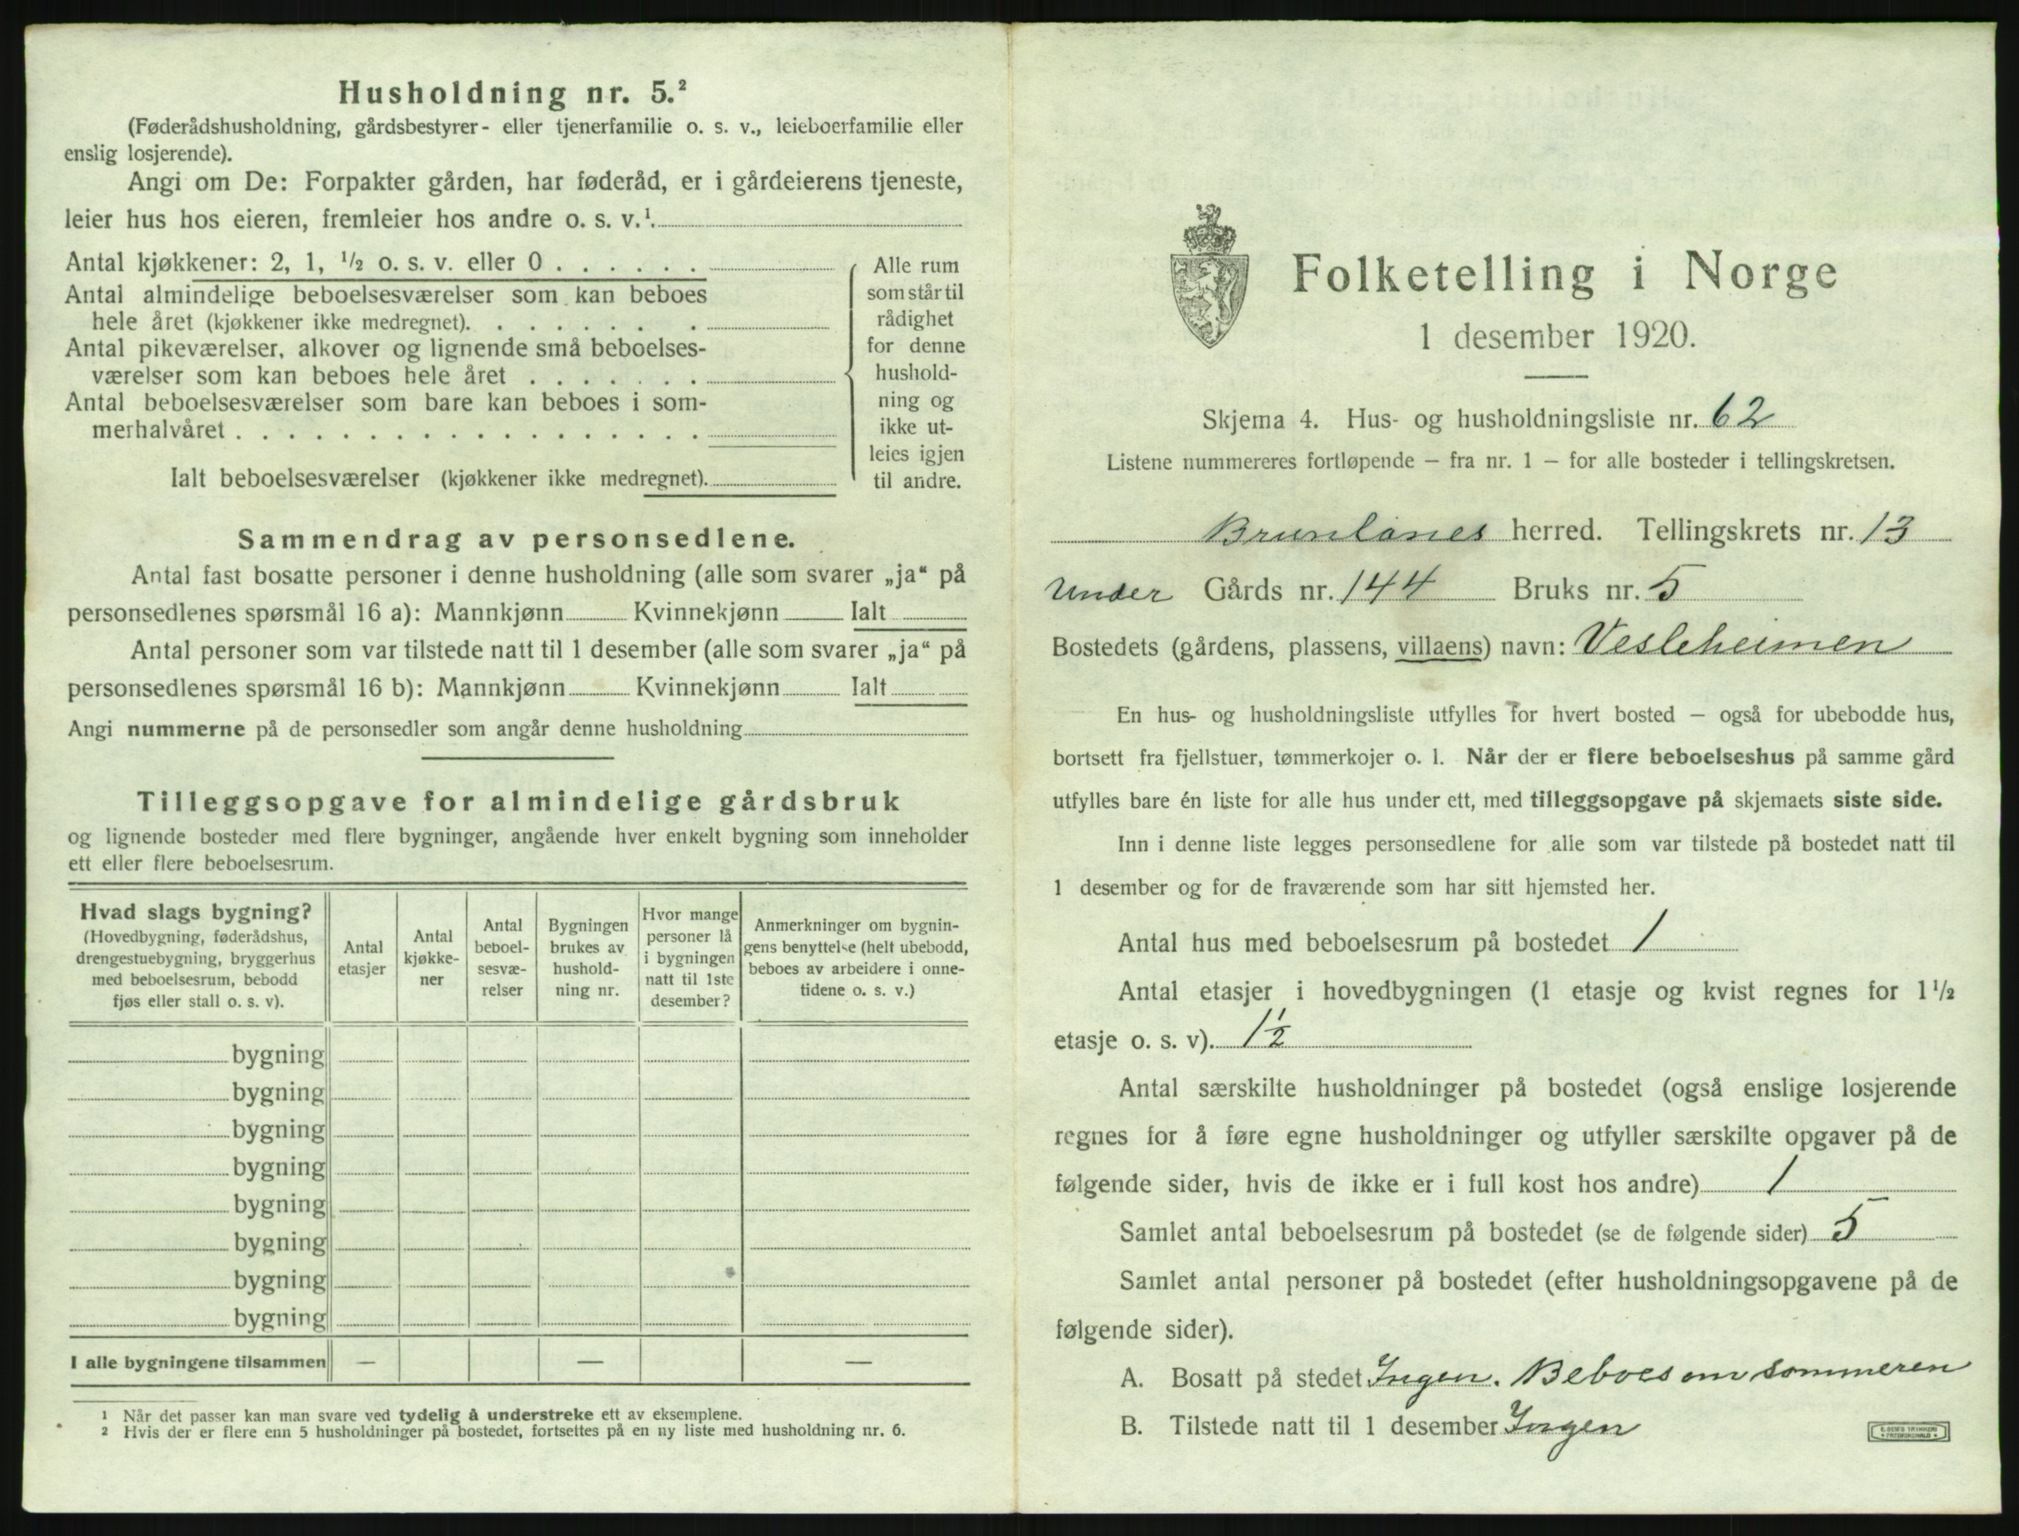 Husholdning nr. 5.²
(Føderådshusholdning, gårdsbestyrer- eller tjenerfamilie o. s. v., leieboerfamilie eller
enslig losjerende).
Angi om De: Forpakter gården, har føderåd, er i gårdeierens tjeneste,
leier hus hos eieren, fremleier hos andre o. s. v.¹.
Antal kjøkkener: 2, 1, ½ o. s. v. eller 0 . . . . . .
Antal almindelige beboelsesværelser som kan beboes
hele året (kjøkkener ikke medregnet). . . . . . . .
Antal pikeværelser, alkover og lignende små beboelses-
værelser som kan beboes hele året . . . . . . .
Antal beboelsesværelser som bare kan beboes i som-
merhalvåret . . . . . . . . . . . . . . . . . .
Ialt beboelsesværelser (kjøkkener ikke medregnet).
Alle rum
som står til
rådighet
for denne
hushold-
ning og
ikke ut-
leies igjen
til andre.
Sammendrag av personsedlene.
Antal fast bosatte personer i denne husholdning (alle som svarer „ja“ på
personsedlenes spørsmål 16 a): Mannkjønn Kvinnekjønn Ialt
Antal personer som var tilstede natt til 1 desember (alle som svarer „ja“ på
personsedlenes spørsmål 16 b): Mannkjønn Kvinnekjønn Ialt
Angi nummerne på de personsedler som angår denne husholdning
Tilleggsopgave for almindelige gårdsbruk
og lignende bosteder med flere bygninger, angående hver enkelt bygning som inneholder
ett eller flere beboelsesrum.
Hvad slags bygning?
(Hovedbygning, føderådshus,
drengestuebygning, bryggerhus
med beboelsesrum, bebodd
fjøs eller stall o. s. v).
Antal
etasjer
Antal
kjøkke-
ner
Antal
beboel-
sesvæ-
relser
Bygningen
brukes av
hushold-
ning nr.
Hvor mange
personer lå
i bygningen
natt til 1ste
desember?
Anmerkninger om bygnin-
gens benyttelse (helt ubebodd,
beboes av arbeidere i onne-
tidene o. s. v.)
bygning
bygning
bygning
bygning
bygning
bygning
bygning
bygning
I alle bygningene tilsammen — — —
¹ Når det passer kan man svare ved tydelig å understreke ett av eksemplene.
² Hvis der er flere enn 5 husholdninger på bostedet, fortsettes på en ny liste med husholdning nr. 6.
Folketelling i Norge
1 desember 1920.
Skjema 4. Hus- og husholdningsliste nr. 62
Listene nummereres fortløpende – fra nr. 1 – for alle bosteder i tellingskretsen.
Brunlanes herred. Tellingskrets nr. 13
under Gårds nr. 144 Bruks nr. 5
Bostedets (gårdens, plassens, villaens) navn: Vesleheimen
En hus- og husholdningsliste utfylles for hvert bosted – også for ubebodde hus,
bortsett fra fjellstuer, tømmerkojer o. l. Når der er flere beboelseshus på samme gård
utfylles bare én liste for alle hus under ett, med tilleggsopgave på skjemaets siste side.
Inn i denne liste legges personsedlene for alle som var tilstede på bostedet natt til
1 desember og for de fraværende som har sitt hjemsted her.
Antal hus med beboelsesrum på bostedet 1
Antal etasjer i hovedbygningen (1 etasje og kvist regnes for 1½
etasje o. s. v). 1½
Antal særskilte husholdninger på bostedet (også enslige losjerende
regnes for å føre egne husholdninger og utfyller særskilte opgaver på de
følgende sider, hvis de ikke er i full kost hos andre) 1
Samlet antal beboelsesrum på bostedet (se de følgende sider) 5
Samlet antal personer på bostedet (efter husholdningsopgavene på de
følgende sider).
A. Bosatt på stedet Ingen. Beboes om sommeren
B. Tilstede natt til 1 desember Ingen